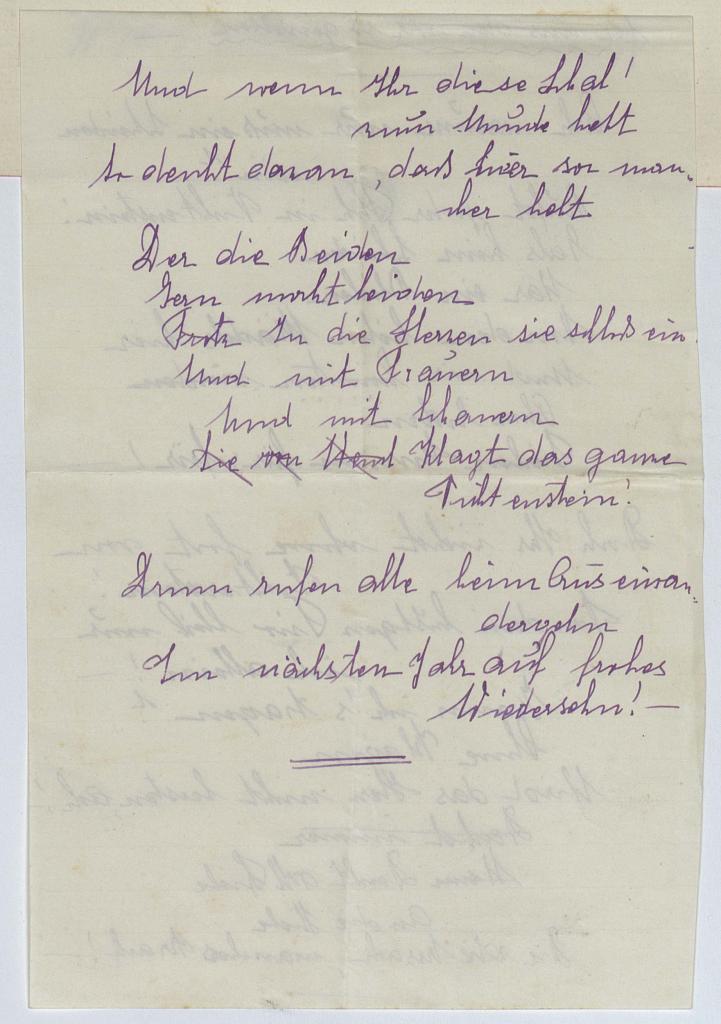 Und wenn Ihr diese Schal'
zum Munde hebt
So denkt daran, dass hier so man-
cher lebt
Der die Beiden
Gern mocht leiden
Trotz In die Herzen sie schloß ein
Und mit Trauern
Und mit Schauern
Sie von Wend Klagt das ganze
Tüttenstein!
Drum rufen alle beim Auseinan-
dergehn
Im nächsten Jahr auf frohes
Wiedersehn! —